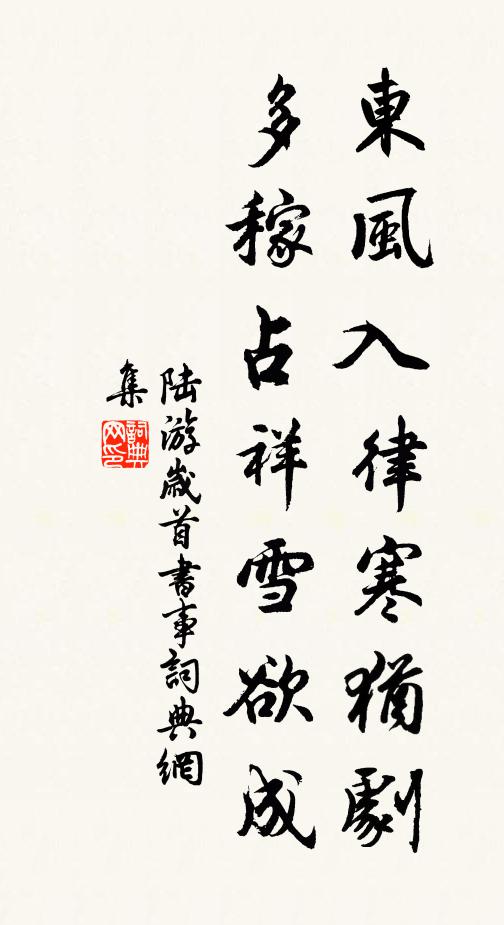 東風入律寒猶劇
多稼占祥雪欲成
陸游歲首書事詞典網
集
詞典网印